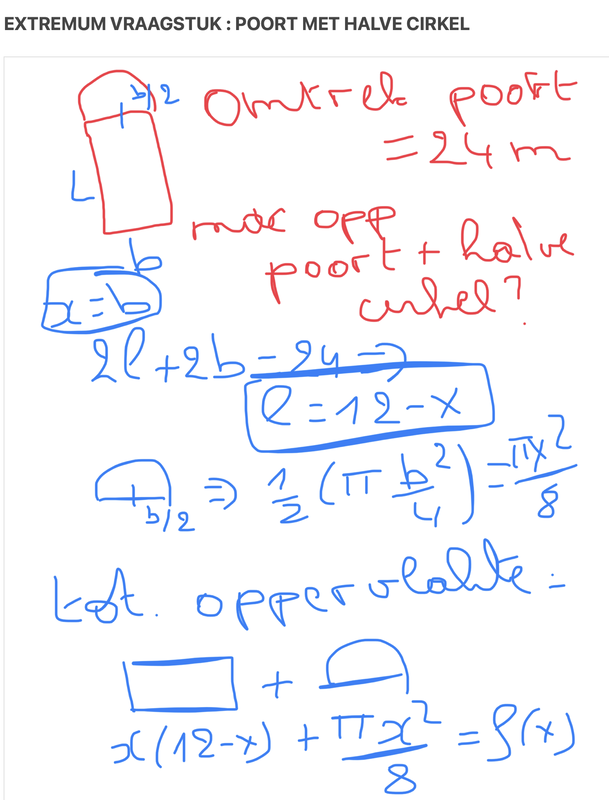 EXTREMUM VRAAGSTUK : POORT MET HALVE CIRKEL
b/2 Omtrek poort
= 24 m
L
max opp
b poort + halve
x = b cirkel?
2l + 2b = 24 ⇒
l = 12 - x
b/2 ⇒ 1/2 (π b²/4) = πx²/8
tot. oppervlakte =
+
x(12-x) + πx²/8 = f(x)